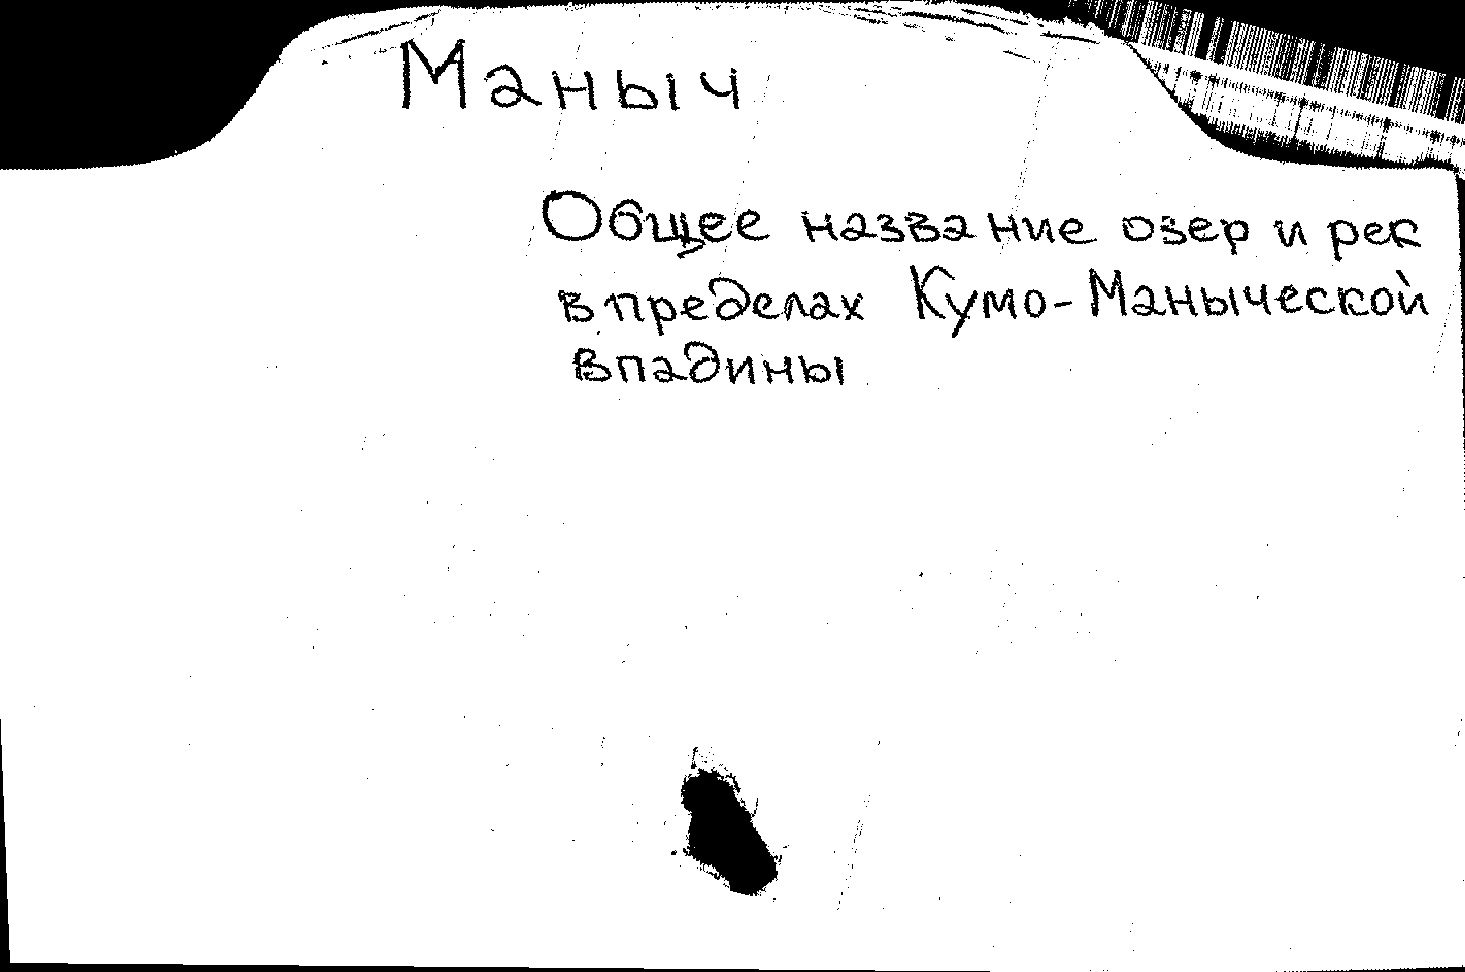 Маныч
Общее название озер и рек
в пределах Кумо-Маныческой
впадины